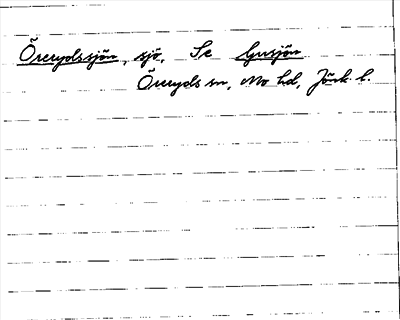 Örerydssjön, sjö. Se Ljusjön
Öreryds sn, Mo hd, Jönk. l.